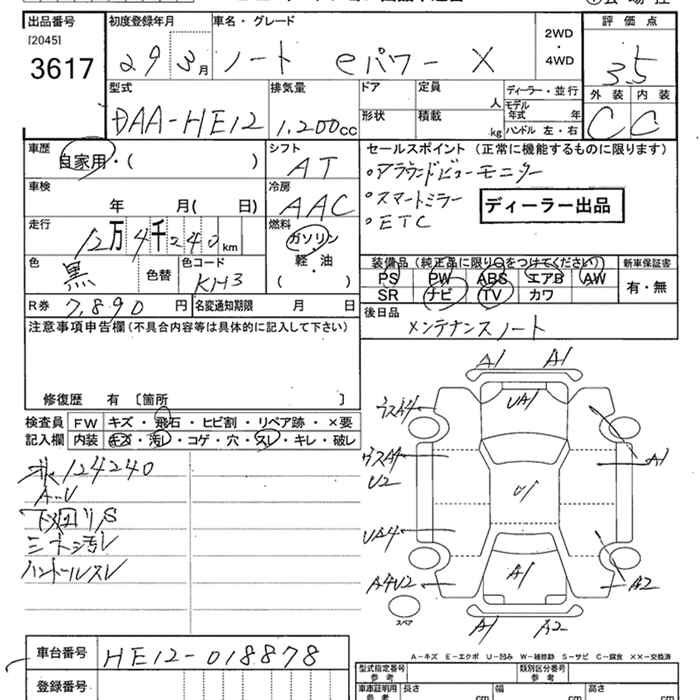 出品番号 初度登録年月 車名・グレード 2WD・4WD 評価点
[2045]
3617 29 3月 ノート eパワー X 3.5
型式 排気量 ドア 定員 人 ディーラー・並行 外装 内装
DAA-HE12 1,200cc 形状 積載 kg モデル年式 年 ハンドル 左・右 C C
車歴 シフト セールスポイント (正常に機能するものに限ります)
自家用・( ) AT ・アラウンドビューモニター
車検 冷房 ・スマートミラー
年 月( 日) AAC ・ETC ディーラー出品
走行 燃料
12万4千240km ガソリン 軽・油 ( )
色 黒 色替 色コード KH3
装備品 (純正品に限り○をつけてください) 新車保証書
PS PW ABS エアB AW 有・無
SR ナビ TV カワ
R券 7,890円 名変通知期限 月 日
後日品
メンテナンスノート
注意事項申告欄(不具合内容等は具体的に記入して下さい)
修復歴 有 〔箇所 〕
検査員記入欄 FW キズ・飛石・ヒビ割・リペア跡・×要
内装 キズ・汚レ・コゲ・穴・スレ・キレ・破レ
124240
A-U
下回リS
シート汚レ
ハンドルスレ
A1 A1
UA1
A1
U2
UA4
U1
A4U2
A1
A2
A1 A2
スペア
A-キズ E-エクボ U-凹み W-補修跡 S-サビ C-腐食 XX-交換済
車台番号 HE12-018878
登録番号
型式指定番号 参考 類別区分番号 参考
車庫証明用 参考 長さ cm 幅 cm 高さ cm